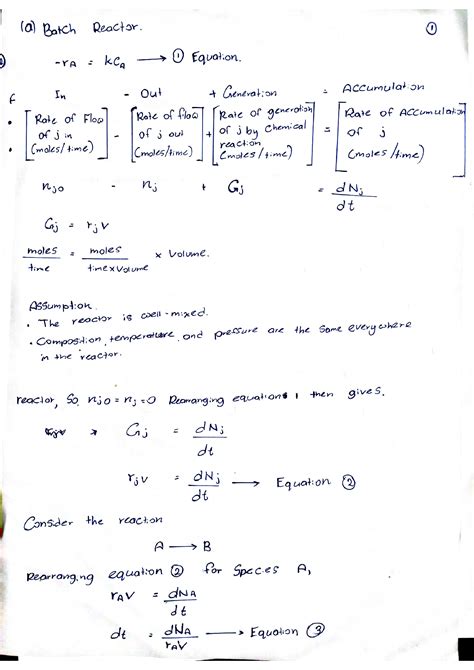 (a) Batch Reactor. ①
-rA = kCA → ① Equation.
In - Out + Generation = Accumulation
[Rate of Flow of j in (moles/time)] - [Rate of flow of j out (moles/time)] + [Rate of generation of j by chemical reaction (moles/time)] = [Rate of Accumulation of j (moles/time)]
nj0 - nj + Gj = dNj/dt
Gj = rjV
moles/time = moles/time x volume x Volume.
Assumption.
• The reactor is well-mixed.
• Composition, temperature, and pressure are the same everywhere
in the reactor.
reactor, So, nj0 = nj = 0 Rearranging equation 1 then gives.
Gj = dNj/dt
rjV = dNj/dt → Equation ②
Consider the reaction
A → B
Rearranging equation ② for Species A,
rAV = dNA/dt
dt = dNA/rAV → Equation ③